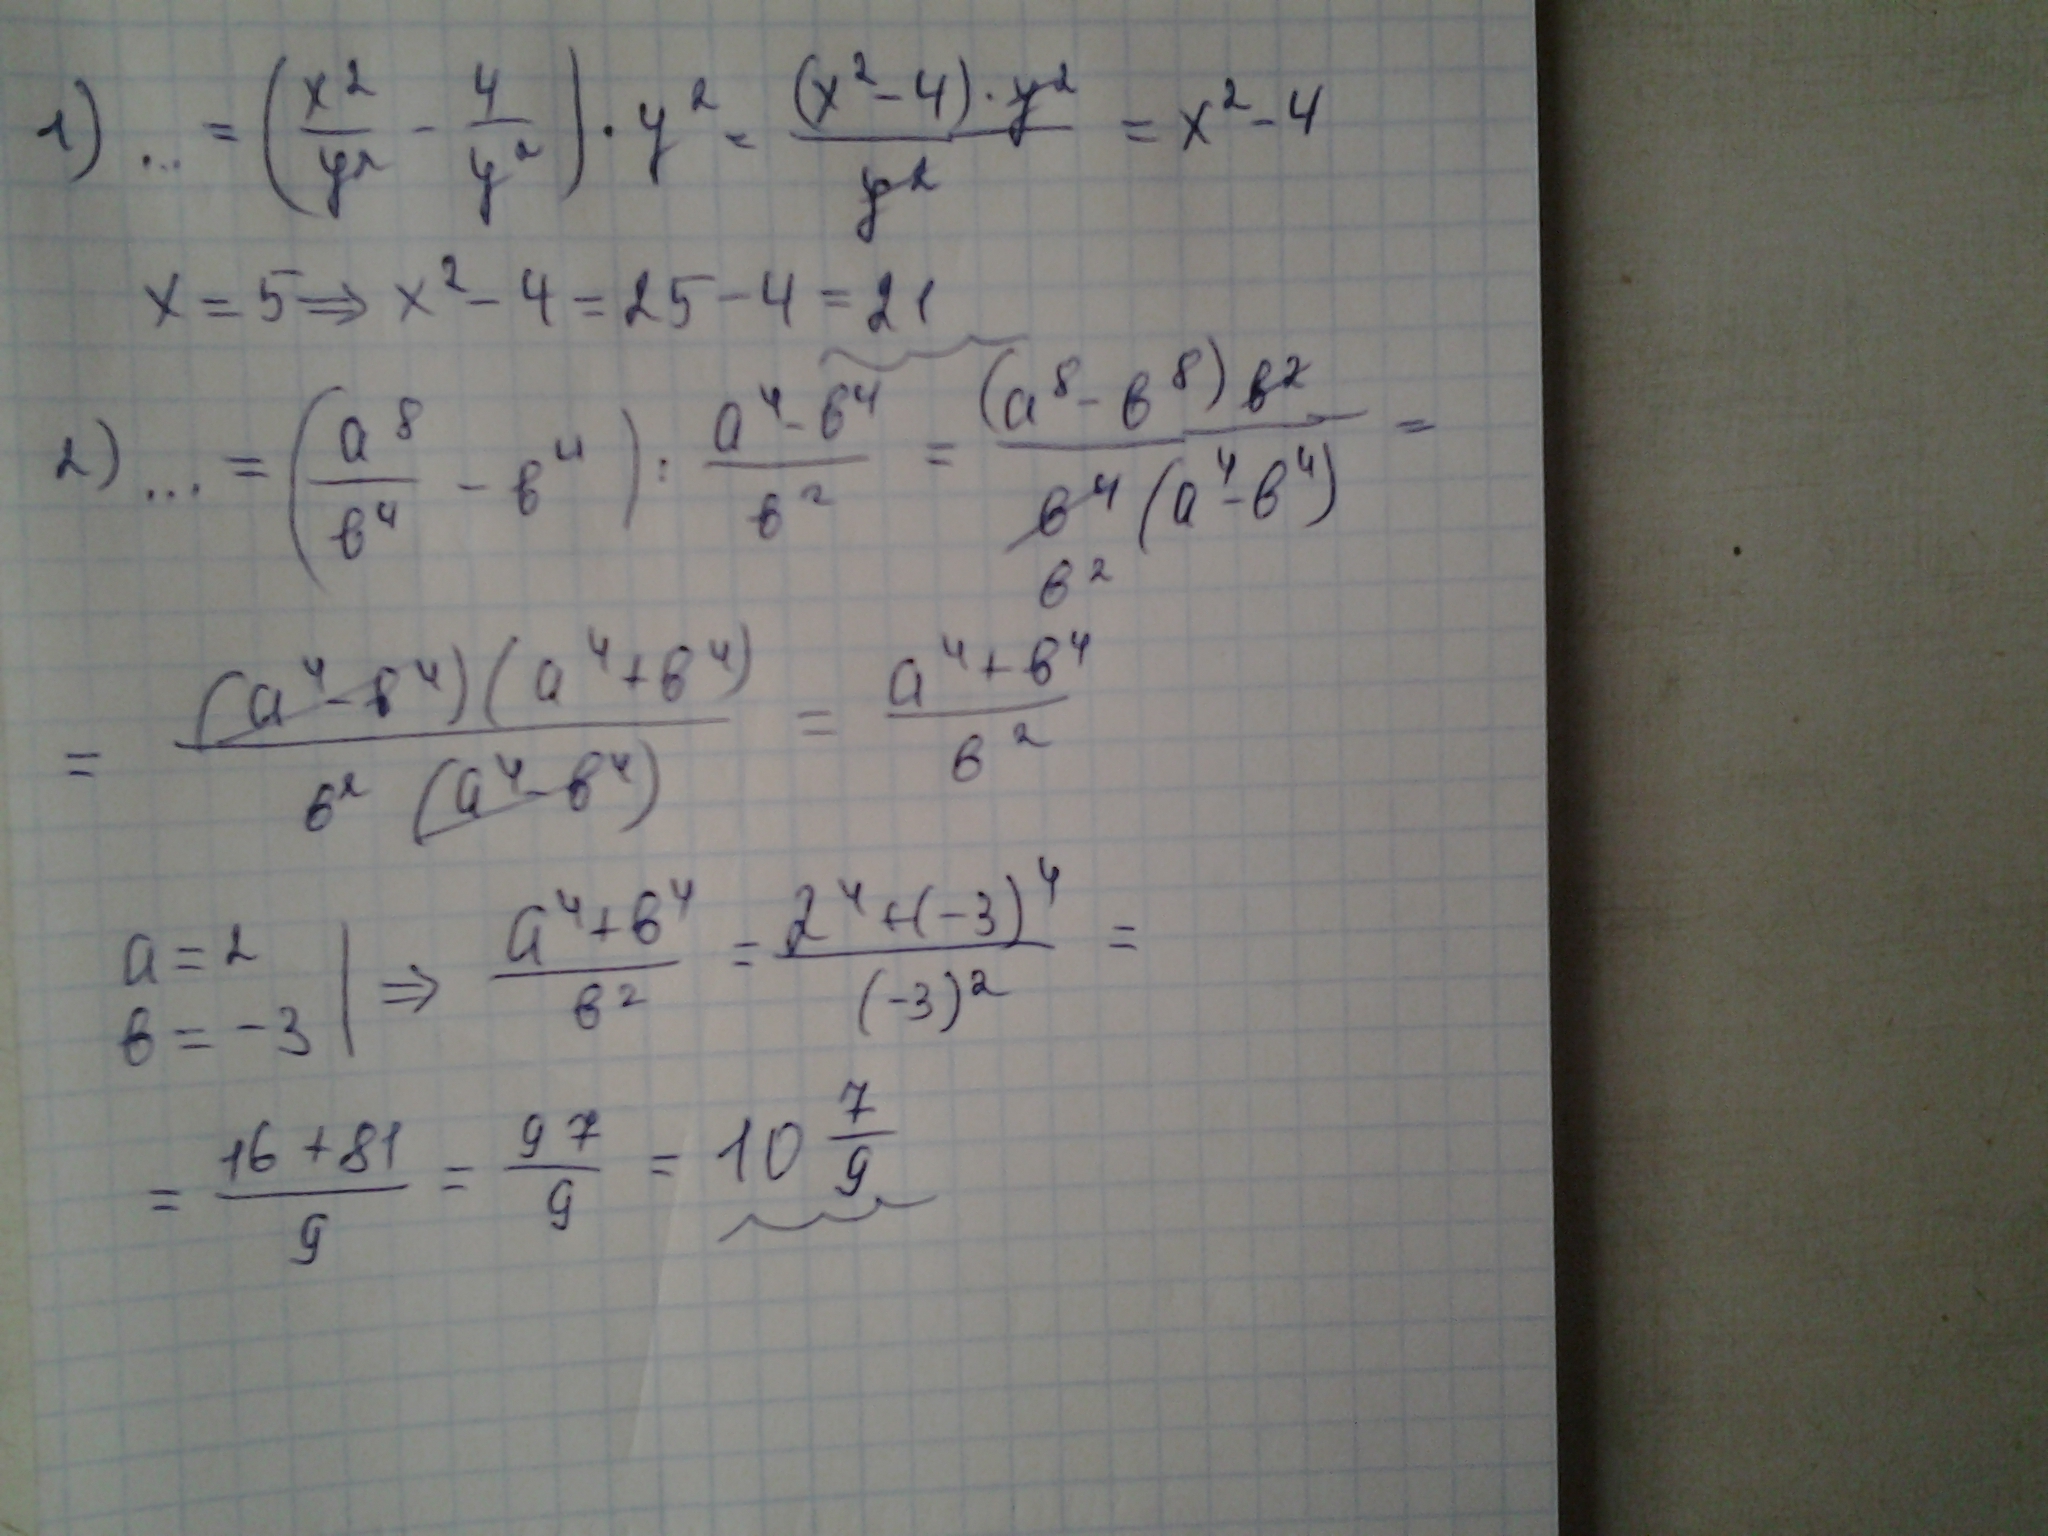 1) ... = (x²/y² - 4/y²) · y² = (x² - 4) · y²/y² = x² - 4
x = 5 ⇒ x² - 4 = 25 - 4 = 21
2) ... = (a⁸/в⁴ - в⁴) : (a⁴ - в⁴)/в² = (a⁸ - в⁸) в²/(в⁴ (a⁴ - в⁴)) =
в²
= (a⁴ - в⁴)(a⁴ + в⁴)/(в² (a⁴ - в⁴)) = (a⁴ + в⁴)/в²
a = 2
в = -3 | ⇒ (a⁴ + в⁴)/в² = (2⁴ + (-3)⁴)/(-3)² =
= (16 + 81)/9 = 97/9 = 10 7/9